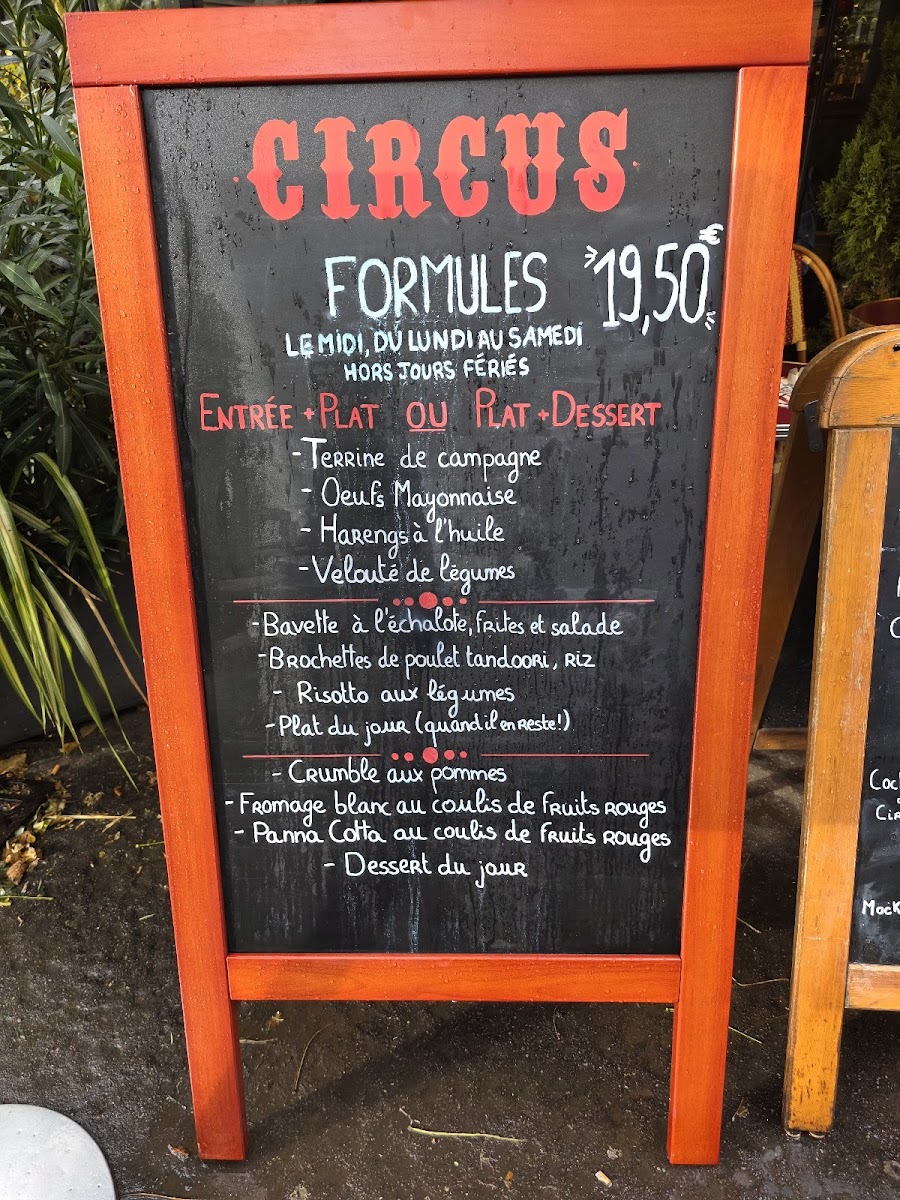 CIRCUS
FORMULES 19,50€
LE MIDI, DU LUNDI AU SAMEDI
HORS JOURS FÉRIÉS
ENTRÉE + PLAT OU PLAT + DESSERT
- Terrine de campagne
- Oeufs Mayonnaise
- Harengs à l'huile
- Velouté de légumes
- Bavette à l'échalote, frites et salade
- Brochettes de poulet tandoori, riz
- Risotto aux légumes
- Plat du jour (quand il en reste!)
- Crumble aux pommes
- Fromage blanc au coulis de fruits rouges
- Panna Cotta au coulis de fruits rouges
- Dessert du jour
Cock
Cir
Mock